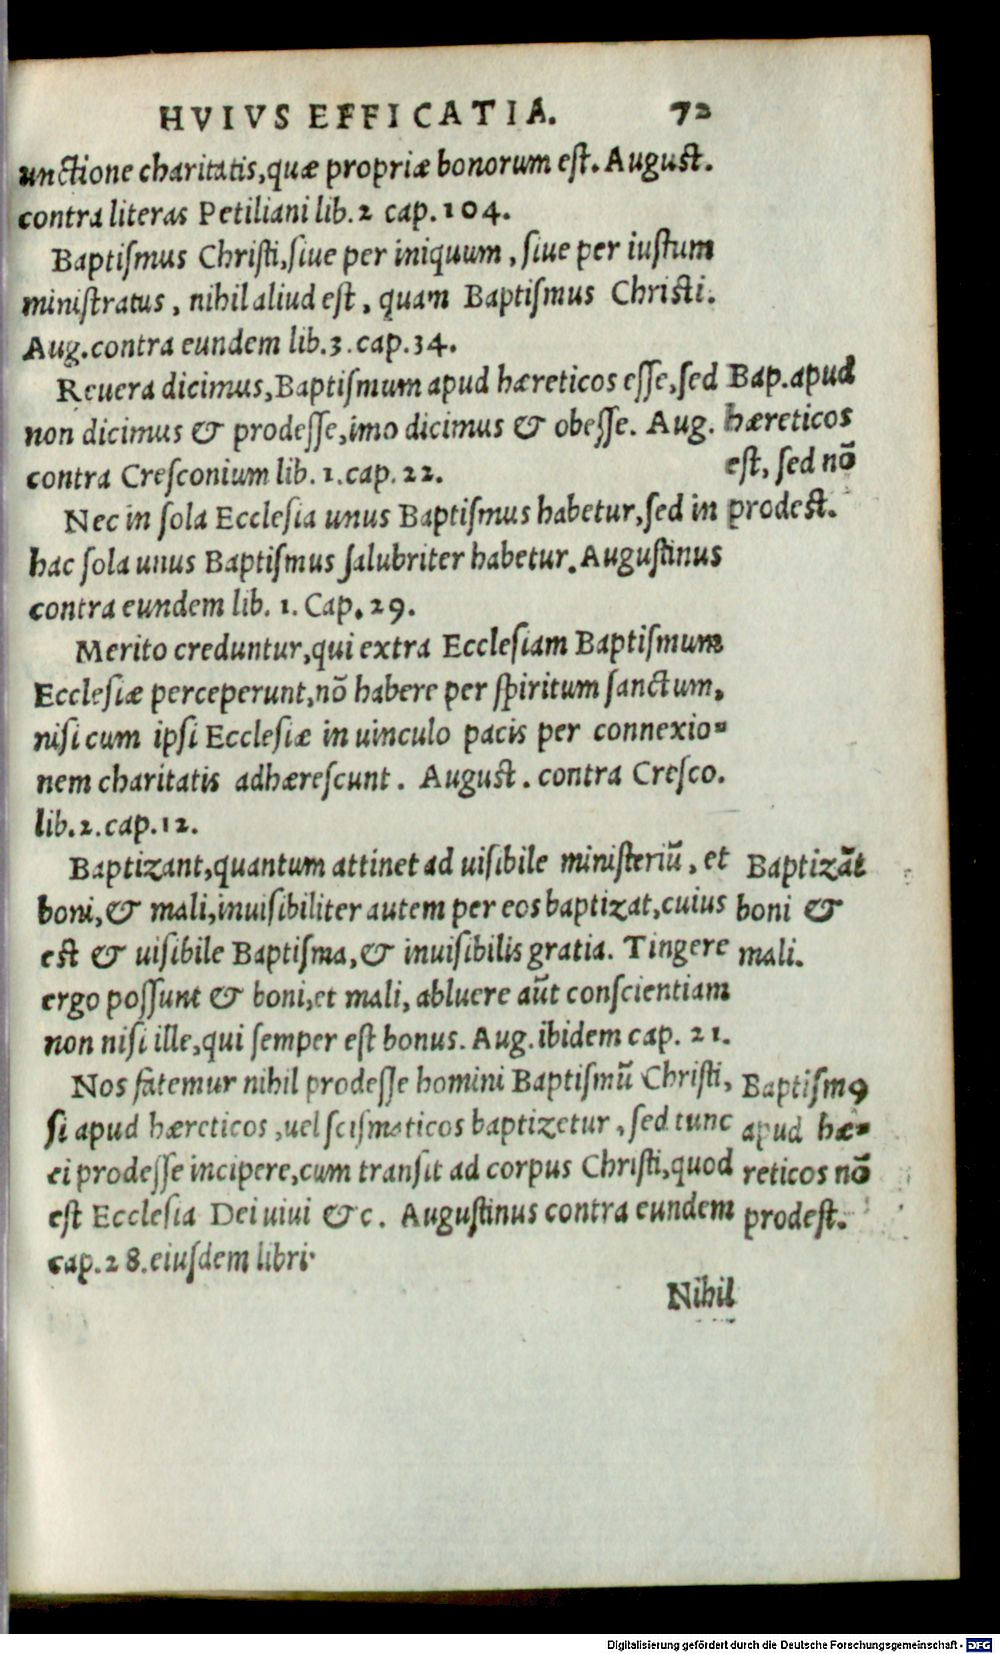 HVIVS EFFICATIA. 72
unctione charitatis,quæ propriæ bonorum est. August.
contra literas Petiliani lib.2 cap.104.
Baptiſmus Chriſti,ſiue per iniquum, ſiue per iuſtum
miniſtratus, nihil aliud eſt, quam Baptiſmus Chriſti.
Aug.contra eundem lib.3.cap.34.
Reuera dicimus,Baptiſmum apud hæreticos eſſe,ſed
non dicimus & prodeſſe,imo dicimus & obeſſe. Aug.
contra Creſconium lib. 1.cap. 22.
Bap.apud
hæreticos
eſt, ſed nō
prodeſt.
Nec in ſola Eccleſia unus Baptiſmus habetur,ſed in
hac ſola unus Baptiſmus ſalubriter habetur. Auguſtinus
contra eundem lib. 1. Cap. 29.
Merito creduntur,qui extra Eccleſiam Baptiſmum
Eccleſiæ perceperunt,nō habere per ſpiritum ſanctum,
niſi cum ipſi Eccleſiæ in uinculo pacis per connexio-
nem charitatis adhæreſcunt. Auguſt. contra Creſco.
lib.2.cap.12.
Baptizant,quantum attinet ad uiſibile miniſteriū, et
boni,& mali,inuiſibiliter autem per eos baptizat,cuius
eſt & uiſibile Baptiſma,& inuiſibilis gratia. Tingere
ergo poſſunt & boni,et mali, abluere aūt conſcientiam
non niſi ille,qui ſemper eſt bonus. Aug.ibidem cap. 21.
Baptizāt
boni &
mali.
Nos fatemur nihil prodeſſe homini Baptiſmū Chriſti,
ſi apud hæreticos,uel ſciſmaticos baptizetur, ſed tunc
ei prodeſſe incipere,cum tranſit ad corpus Chriſti,quod
eſt Eccleſia Dei uiui &c. Auguſtinus contra eundem
cap.28.eiuſdem libri.
Baptiſmꝰ
apud hæ-
reticos nō
prodeſt.
Nihil
Digitalisierung gefördert durch die Deutsche Forschungsgemeinschaft - DFG